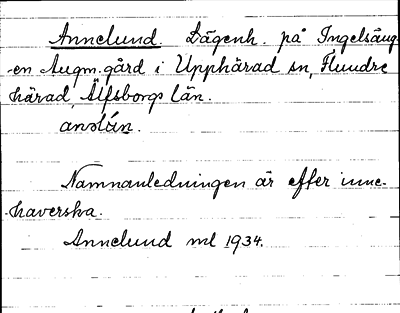 Annelund. Lägenh. på Ingelsäng-
-en Augm.gård i Upphärad sn, Flundre
härad, Älfsborgs län.
Namnanledningen är efter inne-
-haverska.
Annelund ml 1934.